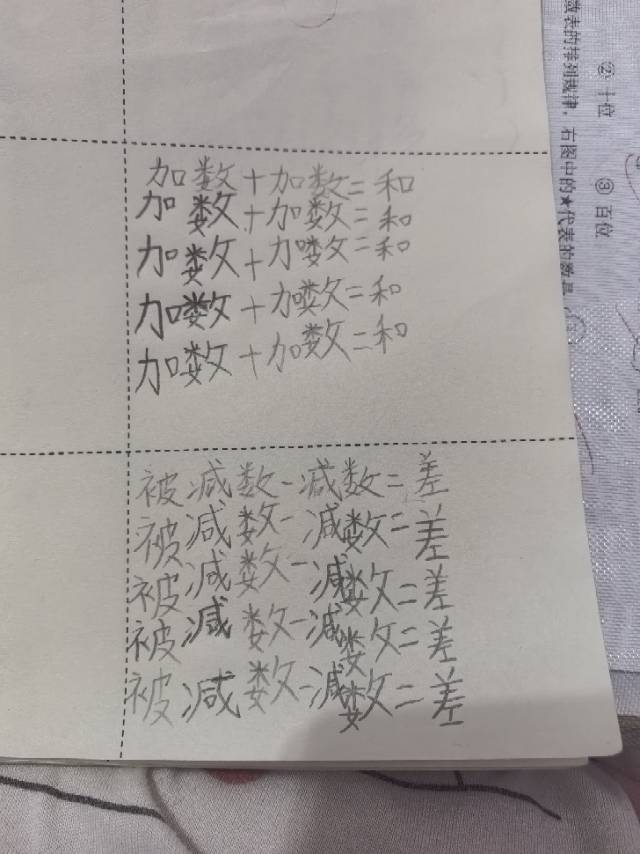 加数+加数=和
加数+加数=和
加数+加数=和
加数+加数=和
加数+加数=和
被减数-减数=差
被减数-减数=差
被减数-减数=差
被减数-减数=差
被减数-减数=差
② 十位 ③ 百位
数表的排列规律，右图中的★代表的数是